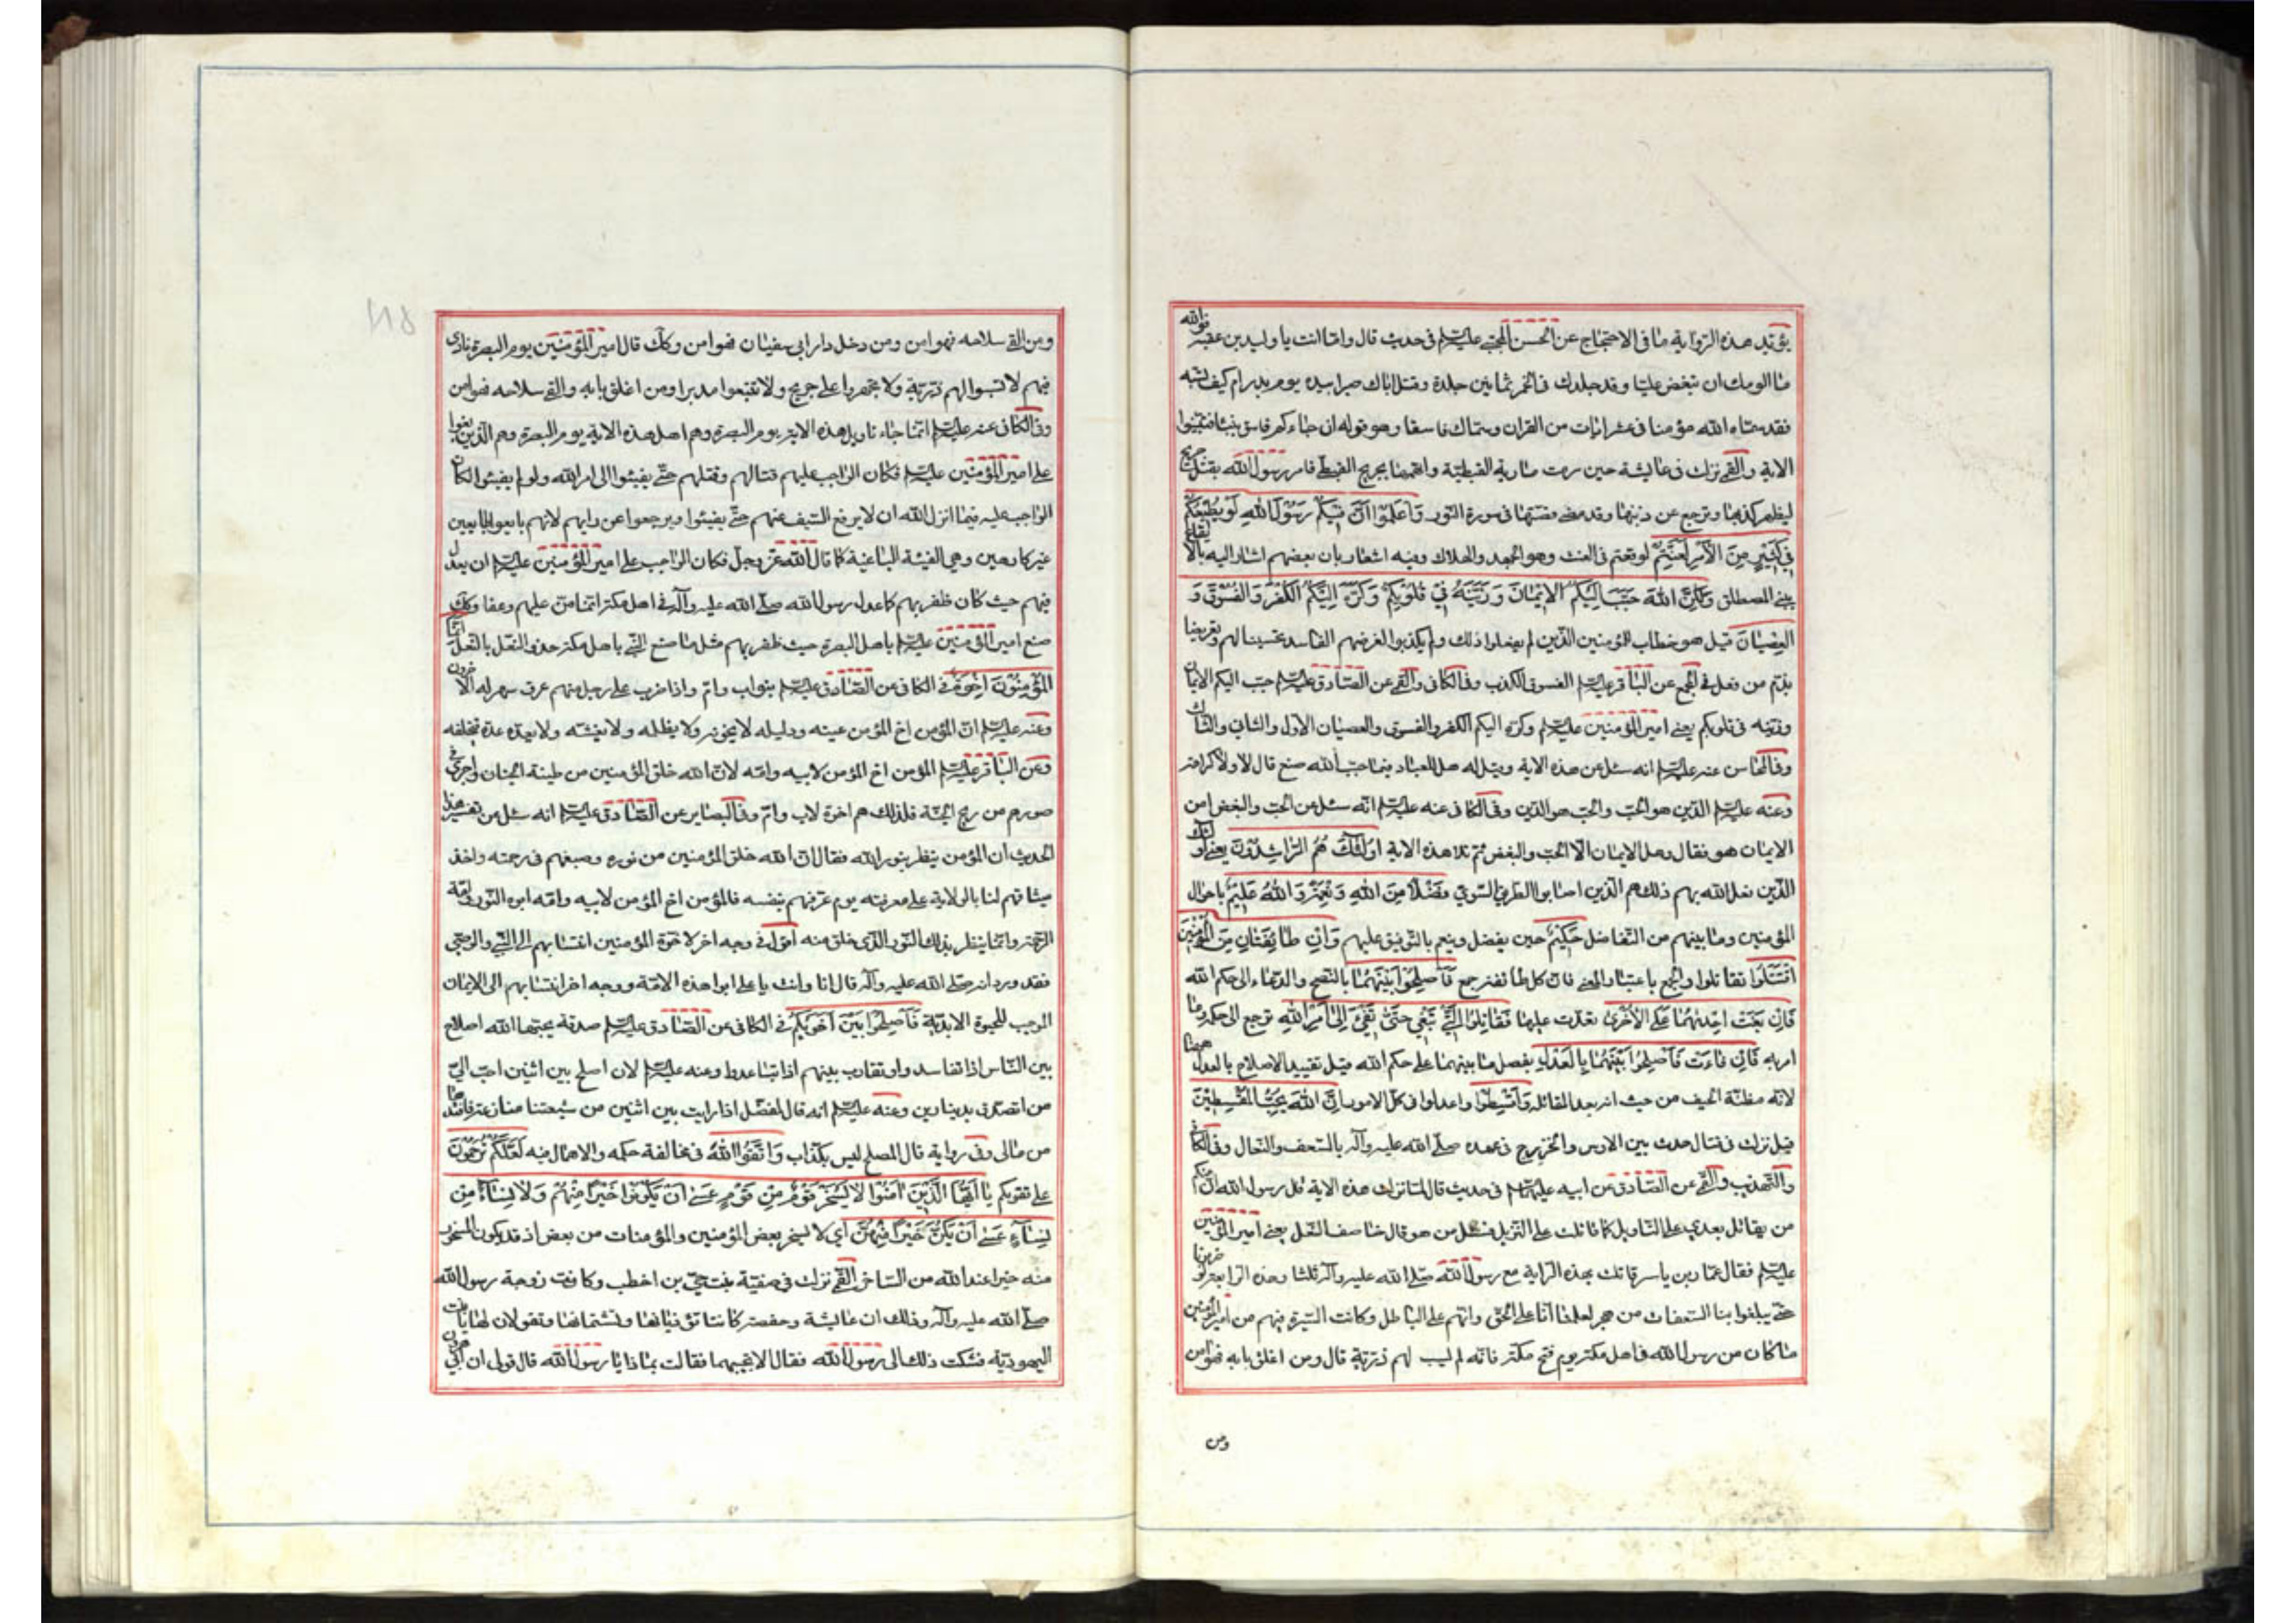 يؤيد هذه الرواية ما فى الاحتجاج عن الحسن المجتبى عليه السلم فى حديث قال واما انت يا وليد بن عقبة فوالله
ما الومك ان تبغض عليا وقد جلدك فى الخمر ثمانين جلدة وقتل اباك صبرا بيده يوم بدر ام كيف تسبه
فقد سماه الله مؤمنا فى عشر ايات من القران وسماك فاسقا وهو قوله ان جاءكم فاسق بنبأ فتبينوا
الاية والقمى نزلت فى عايشة حين رمت مارية القبطية واتهمتها بجريح القبطى فامر رسول الله بقتل جريح
ليظهر كذبها وترجع عن ذنبها وقد مضى قصتها فى سورة النور وَاعْلَمُوا اَنَّ فيكُمْ رَسُولَ اللهِ لَوْ يُطيعُكُمْ
فى كَثيرٍ مِنَ الْاَمْرِ لَعَنِتُّمْ لوقعتم فى العنت وهو الجهد والهلاك وفيه اشعار بان بعضهم اشار اليه بالايقاع
ببنى المصطلق وَلكِنَّ اللهَ حَبَّبَ اِلَيْكُمُ الْايمانَ وَزَيَّنَهُ فى قُلُوبِكُمْ وَكَرَّهَ اِلَيْكُمُ الْكُفْرَ وَالْفُسُوقَ وَ
الْعِصْيانَ قيل هو خطاب للمؤمنين الذين لم يفعلوا ذلك ولم يكذبوا لغرضهم الفاسد تحسينا لهم وتعريضا
بذم من فعل فى المجمع عن الباقر عليه السلم الفسوق الكذب وفى الكافى والقمى عن الصادق عليه السلم حبب اليكم الايمان
وزينه فى قلوبكم يعنى امير المؤمنين عليه السلم وكره اليكم الكفر والفسوق والعصيان الاول والثانى والثالث
وفى المحاسن عنه عليه السلم انه سئل عن هذه الاية وقيل له هل للعباد فيما حبب الله صنع قال لا ولا كرامة
وعنه عليه السلم الدين هو الحب والحب هو الدين وفى الكافى عنه عليه السلم انه سئل عن الحب والبغض امن
الايمان هو فقال وهل الايمان الا الحب والبغض ثم تلا هذه الاية اُولئِكَ هُمُ الرّاشِدُونَ يعنى اولئك
الذين فعل الله بهم ذلك هم الذين اصابوا الطريق السوى فَضْلًا مِنَ اللهِ وَنِعْمَةً وَاللهُ عَليمٌ باحوال
المؤمنين وما بينهم من التفاضل حَكيمٌ حين يفضل وينعم بالتوفيق عليهم وَاِنْ طائِفَتانِ مِنَ الْمُؤْمِنينَ
اقْتَتَلُوا تقاتلوا والجمع باعتبار المعنى فان كل طائفة جمع فَاَصْلِحُوا بَيْنَهُما بالنصح والدعاء الى حكم الله
فَاِنْ بَغَتْ اِحْديهُما عَلَى الْاُخْرى تعدت عليها فَقاتِلُوا الَّتى تَبْغى حَتّى تَفىءَ اِلى اَمْرِ اللهِ ترجع الى حكمه وما
امر به فَاِنْ فاءَتْ فَاَصْلِحُوا بَيْنَهُما بِالْعَدْلِ بفصل ما بينهما على حكم الله قيل تقييد الاصلاح بالعدل ههنا
لانه مظنة الحيف من حيث انه بعد المقاتلة وَاَقْسِطُوا واعدلوا فى كل الامور اِنَّ اللهَ يُحِبُّ الْمُقْسِطينَ
قيل نزلت فى قتال حدث بين الاوس والخزرج فى عهده صلى الله عليه وآله بالسعف والنعال وفى الكافى
والتهذيب والقمى عن الصادق عن ابيه عليهما السلم فى حديث قال لما نزلت هذه الاية قال رسول الله ان منكم
من يقاتل بعدى على التاويل كما قاتلت على التنزيل فسئل من هو قال خاصف النعل يعنى امير المؤمنين
عليه السلم فقال عمار بن ياسر قاتلت بهذه الراية مع رسول الله صلى الله عليه وآله ثلثا وهذه الرابعة والله لو ضربونا
حتى يبلغوا بنا السعفات من هجر لعلمنا انا على الحق وانهم على الباطل وكانت السيرة فيهم من امير المؤمنين
ما كان من رسول الله فى اهل مكة يوم فتح مكة فانه لم يسب لهم ذرية قال ومن اغلق بابه فهو امن
ومن
ومن القى سلاحه فهو امن ومن دخل دار ابى سفيان فهو امن وكك قال امير المؤمنين يوم البصرة نادى
فيهم لا تسبوا لهم ذرية ولا تجهزوا على جريح ولا تتبعوا مدبرا ومن اغلق بابه والقى سلاحه فهو امن
وفى الكافى عنه عليه السلم انما جاء تاويل هذه الاية يوم البصرة وهم اهل هذه الاية يوم البصرة وهم الذين بغوا
على امير المؤمنين عليه السلم فكان الواجب عليهم قتالهم وقتلهم حتى يفيئوا الى امر الله ولو لم يفيئوا لكان
الواجب عليه فيما انزل الله ان لا يرفع السيف عنهم حتى يفيئوا ويرجعوا عن رايهم لانهم بايعوا طايعين
غير كارهين وهى الفيئة الباغية كما قال الله عز وجل فكان الواجب على امير المؤمنين عليه السلم ان يعدل
فيهم حيث كان ظفر بهم كما عدل رسول الله صلى الله عليه وآله فى اهل مكة انما من عليهم وعفا وكك
صنع امير المؤمنين عليه السلم باهل البصرة حيث ظفر بهم مثل ما صنع النبى باهل مكة حذو النعل بالنعل اِنَّمَا
الْمُؤْمِنُونَ اِخْوَةٌ فى الكافى عن الصادق عليه السلم بنو اب وام واذا ضرب على رجل منهم عرق سهر له الاخرون
وعنه عليه السلم ان المؤمن اخ المؤمن عينه ودليله لا يخونه ولا يظلمه ولا يغشه ولا يعده عدة فيخلفه
وعن الباقر عليه السلم المؤمن اخ المؤمن لابيه وامه لان الله خلق المؤمنين من طينة الجنان واجرى فى
صورهم من ريح الجنة فلذلك هم اخوة لاب وام وفى البصاير عن الصادق عليه السلم انه سئل عن تفسير هذا
الحديث ان المؤمن ينظر بنور الله فقال ان الله خلق المؤمنين من نوره وصبغهم فى رحمته واخذ
ميثاقهم لنا بالولاية على معرفته يوم عرفهم نفسه فالمؤمن اخ المؤمن لابيه وامه ابوه النور وامه
الرحمة وانما ينظر بذلك النور الذى خلق منه اقول فى وجه اخر لاخوة المؤمنين انتسابهم الى النبى والوصى
فقد ورد انه صلى الله عليه وآله قال انا وانت يا على ابوا هذه الامة ووجه اخر انتسابهم الى الايمان
الموجب للحيوة الابدية فَاَصْلِحُوا بَيْنَ اَخَوَيْكُمْ فى الكافى عن الصادق عليه السلم صدقة يحبها الله اصلاح
بين الناس اذا تفاسدوا وتقارب بينهم اذا تباعدوا وعنه عليه السلم لان اصلح بين اثنين احب الى
من اتصدق بدينارين وعنه عليه السلم انه قال لمفضل اذا رايت بين اثنين من شيعتنا منازعة فافتدها
من مالى وفى رواية قال المصلح ليس بكذاب وَاتَّقُوا اللهَ فى مخالفة حكمه والاهمال فيه لَعَلَّكُمْ تُرْحَمُونَ
على تقويكم يا اَيُّهَا الَّذينَ امَنُوا لا يَسْخَرْ قَوْمٌ مِنْ قَوْمٍ عَسى اَنْ يَكُونُوا خَيْرًا مِنْهُمْ وَلا نِساءٌ مِنْ
نِساءٍ عَسى اَنْ يَكُنَّ خَيْرًا مِنْهُنَّ اى لا يسخر بعض المؤمنين والمؤمنات من بعض اذ قد يكون المسخور
منه خيرا عند الله من الساخر القمى نزلت فى صفية بنت حيى بن اخطب وكانت زوجة رسول الله
صلى الله عليه وآله وذلك ان عايشة وحفصة كانتا تؤذيانها وتشتمانها وتقولان لها يا بنت
اليهودية فشكت ذلك الى رسول الله فقال الا تجيبيهما فقالت بماذا يا رسول الله قال قولى ان ابى هرون